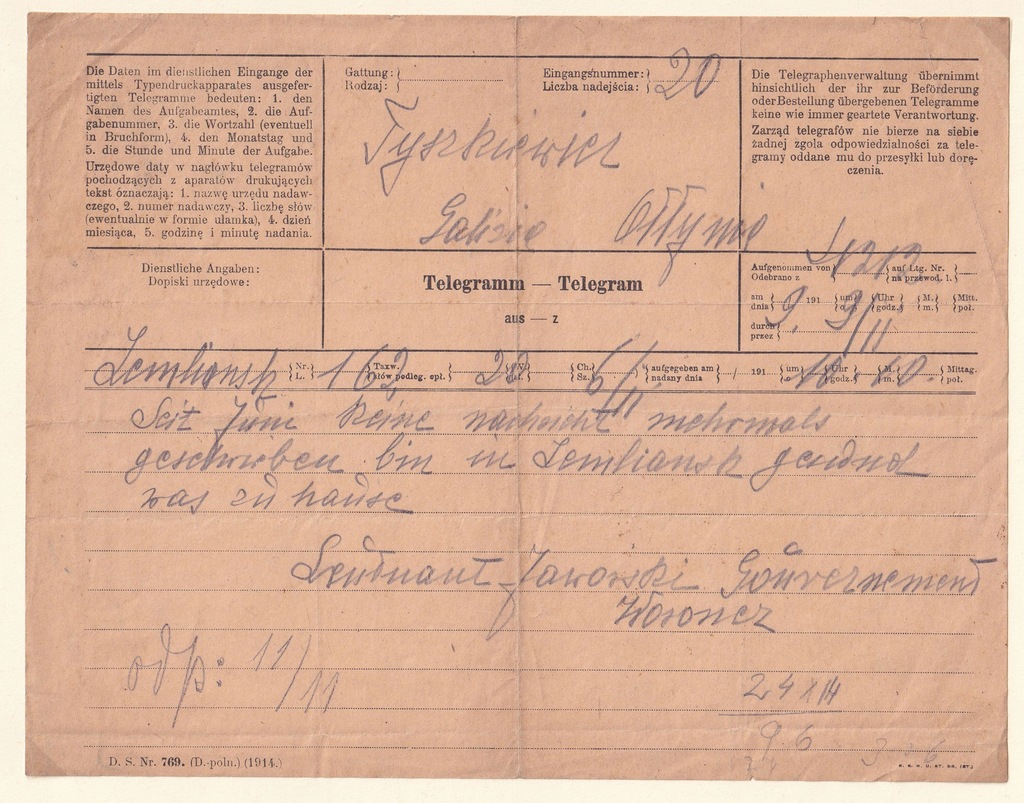 Die Daten im dienstlichen Eingange der
mittels Typendruckapparates ausgefer-
tigten Telegramme bedeuten: 1. den
Namen des Aufgabeamtes, 2. die Auf-
gabenummer, 3. die Wortzahl (eventuell
in Bruchform), 4. den Monatstag und
5. die Stunde und Minute der Aufgabe.
Urzędowe daty w nagłówku telegramów
pochodzących z aparatów drukujących
tekst óznaczają: 1. nazwę urzędu nadaw-
czego, 2. numer nadawczy, 3. liczbę słów
(ewentualnie w formie ułamka), 4. dzień
miesiąca, 5. godzinę i minutę nadania.
Gattung:
Rodzaj:
Eingangsnummer:
Liczba nadejścia:
20
Tyszkiewicz
Galizie Ottynie
Die Telegraphenverwaltung übernimmt
hinsichtlich der ihr zur Beförderung
oder Bestellung übergebenen Telegramme
keine wie immer geartete Verantwortung.
Zarząd telegrafów nie bierze na siebie
żadnej zgoła odpowiedzialności za tele-
gramy oddane mu do przesyłki lub dorę-
czenia.
Dienstliche Angaben:
Dopiski urzędowe:
Telegramm — Telegram
aus — z
Aufgenommen von auf Ltg. Nr.
Odebrano z na przewod. l.
am 9. 191 um 9/11 Uhr M. Mitt.
dnia o godz. m. poł.
durch
przez
Semliansk Nr. 162 Taxw. 20 W. Ch. 6/11 aufgegeben am / 191 um 10 Uhr 10. M. Mittag.
L. słów podleg. opł. Sz. nadany dnia o godz. m. poł.
Seit Juni keine nachricht mehrmals
geschrieben bin in Semliansk gesund
was zu hause
Leutnant Jaworski Gouvernement
Woronez
odp: 11/11
24 1 14
9 6
D. S. Nr. 769. (D.-poln.) (1914.)